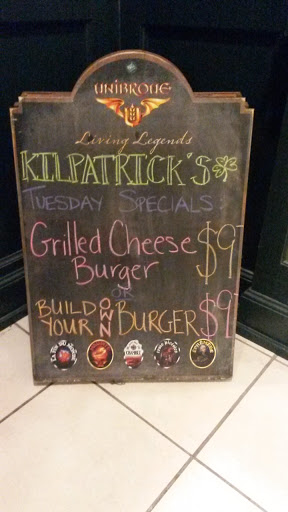 UNIBROUE
Living Legends
KILPATRICK'S
TUESDAY SPECIALS:
Grilled Cheese $9
Burger
OR
BUILD YOUR OWN BURGER $9